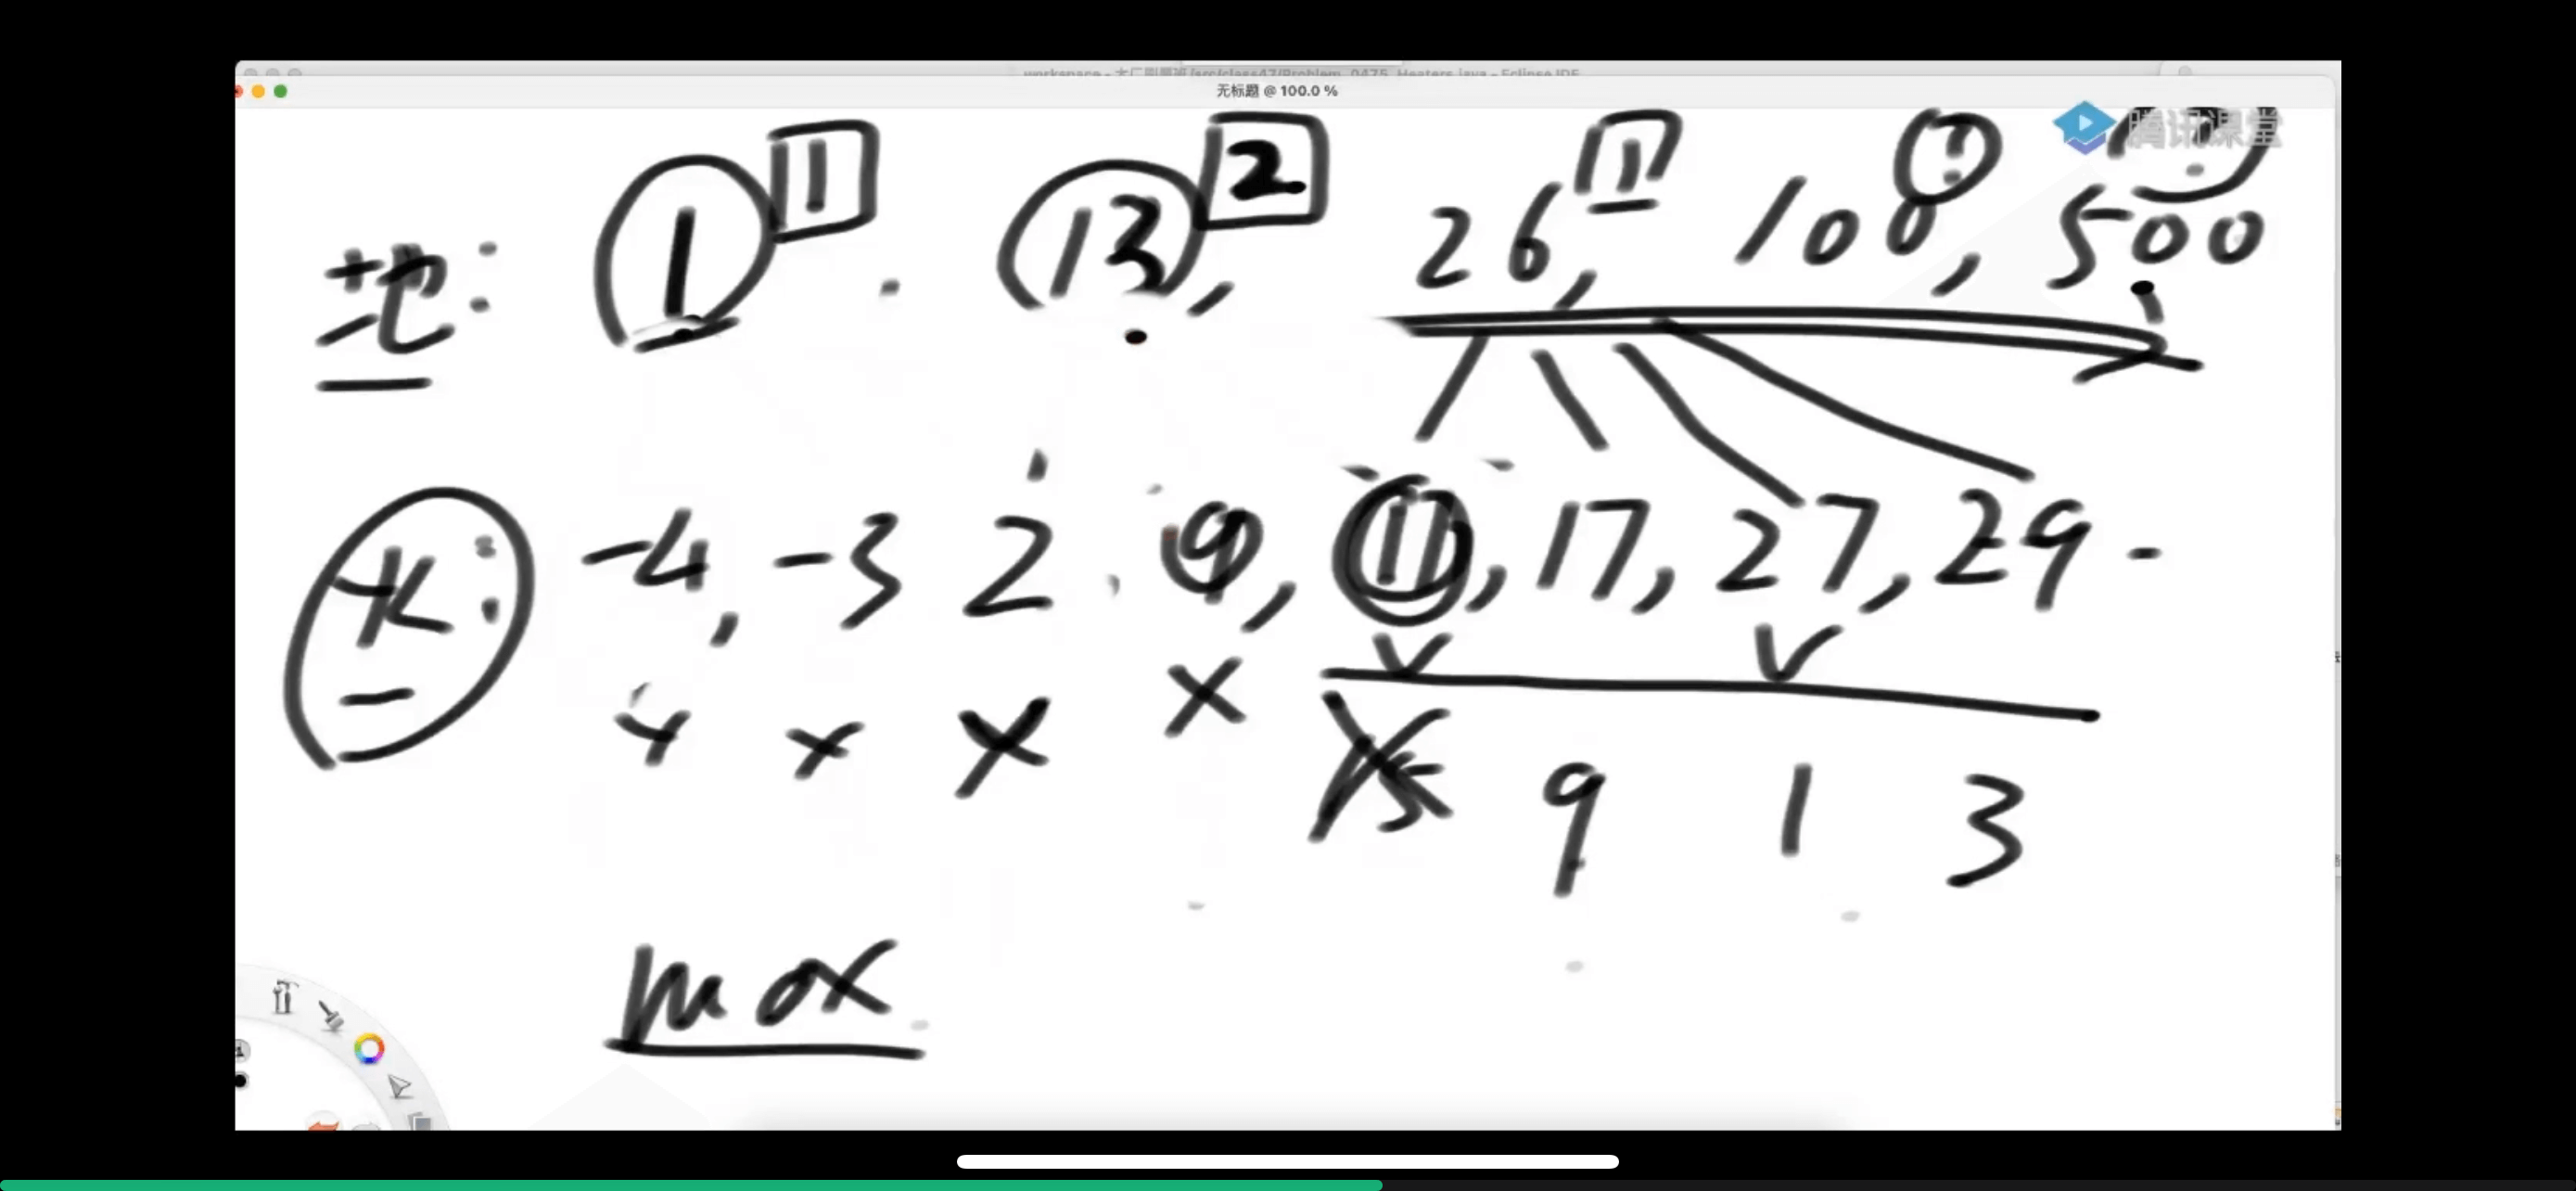 workspace - 大厂刷题班/src/class47/Problem_0475_Heaters.java - Eclipse IDE
无标题 @ 100.0 %
腾讯课堂
11 2 1 ?
地: 1 . 13, 26, 100, 500
火: -4, -3 2 . 9, 11, 17, 27, 29 -
x x x x v v
15 9 1 3
max